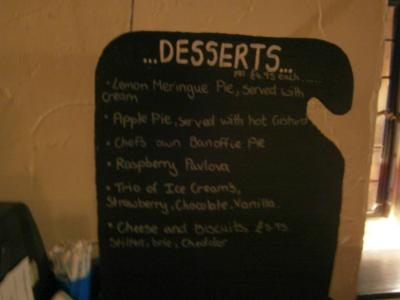 ...DESSERTS...
All £4.95 each......
• Lemon Meringue Pie, served with
cream
• Apple Pie, served with hot Custard
• Chefs own Banoffie Pie
• Raspberry Pavlova
• Trio of Ice Creams,
Strawberry, Chocolate, Vanilla.
• Cheese and Biscuits £5.95
Stilton, brie, Cheddar